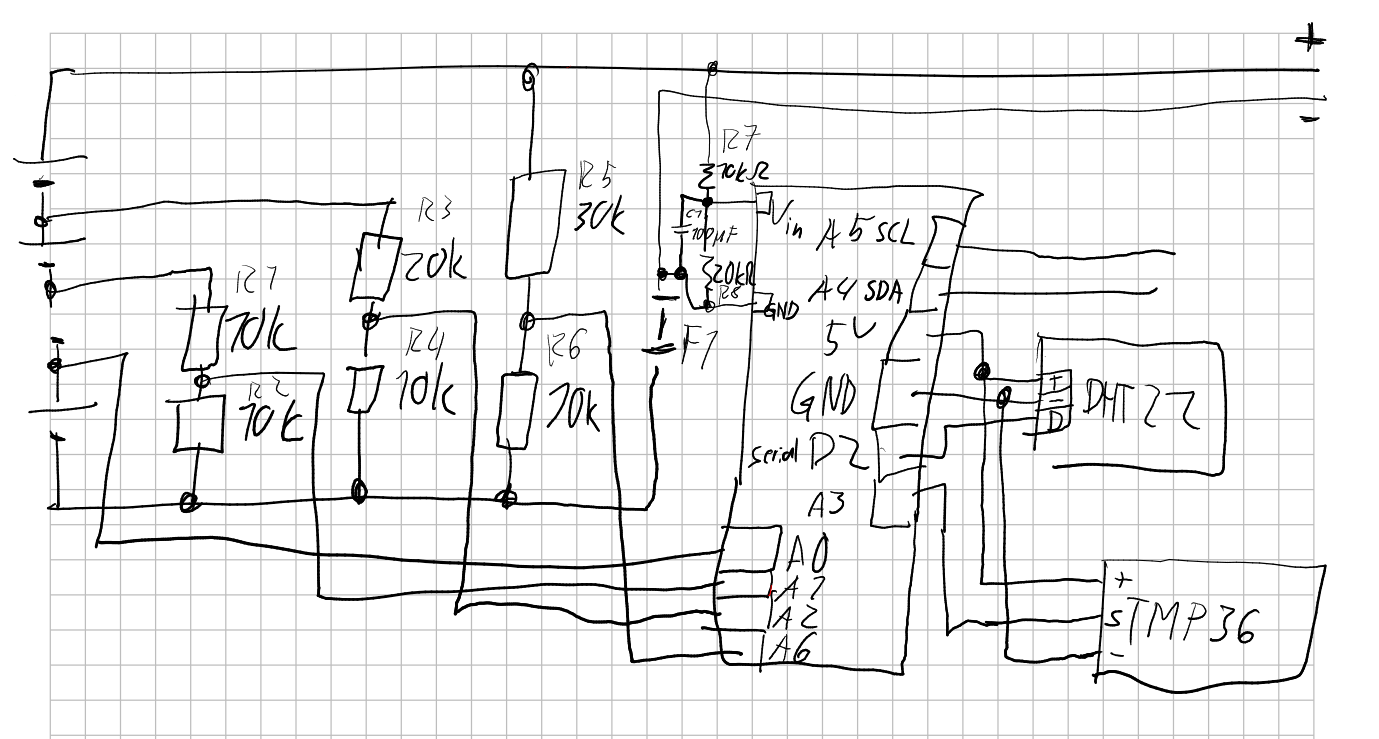 +
-
R7
10kΩ
R5
30k
R3
20k
C1
100µF
Vin
A5 SCL
20kΩ
R8
A4 SDA
GND
R1
10k
5V
F1
R4
10k
R6
10k
R2
10k
GND
+
-
D
DHT22
serial D2
A3
A0
A1
A2
A6
+
S
-
TMP36